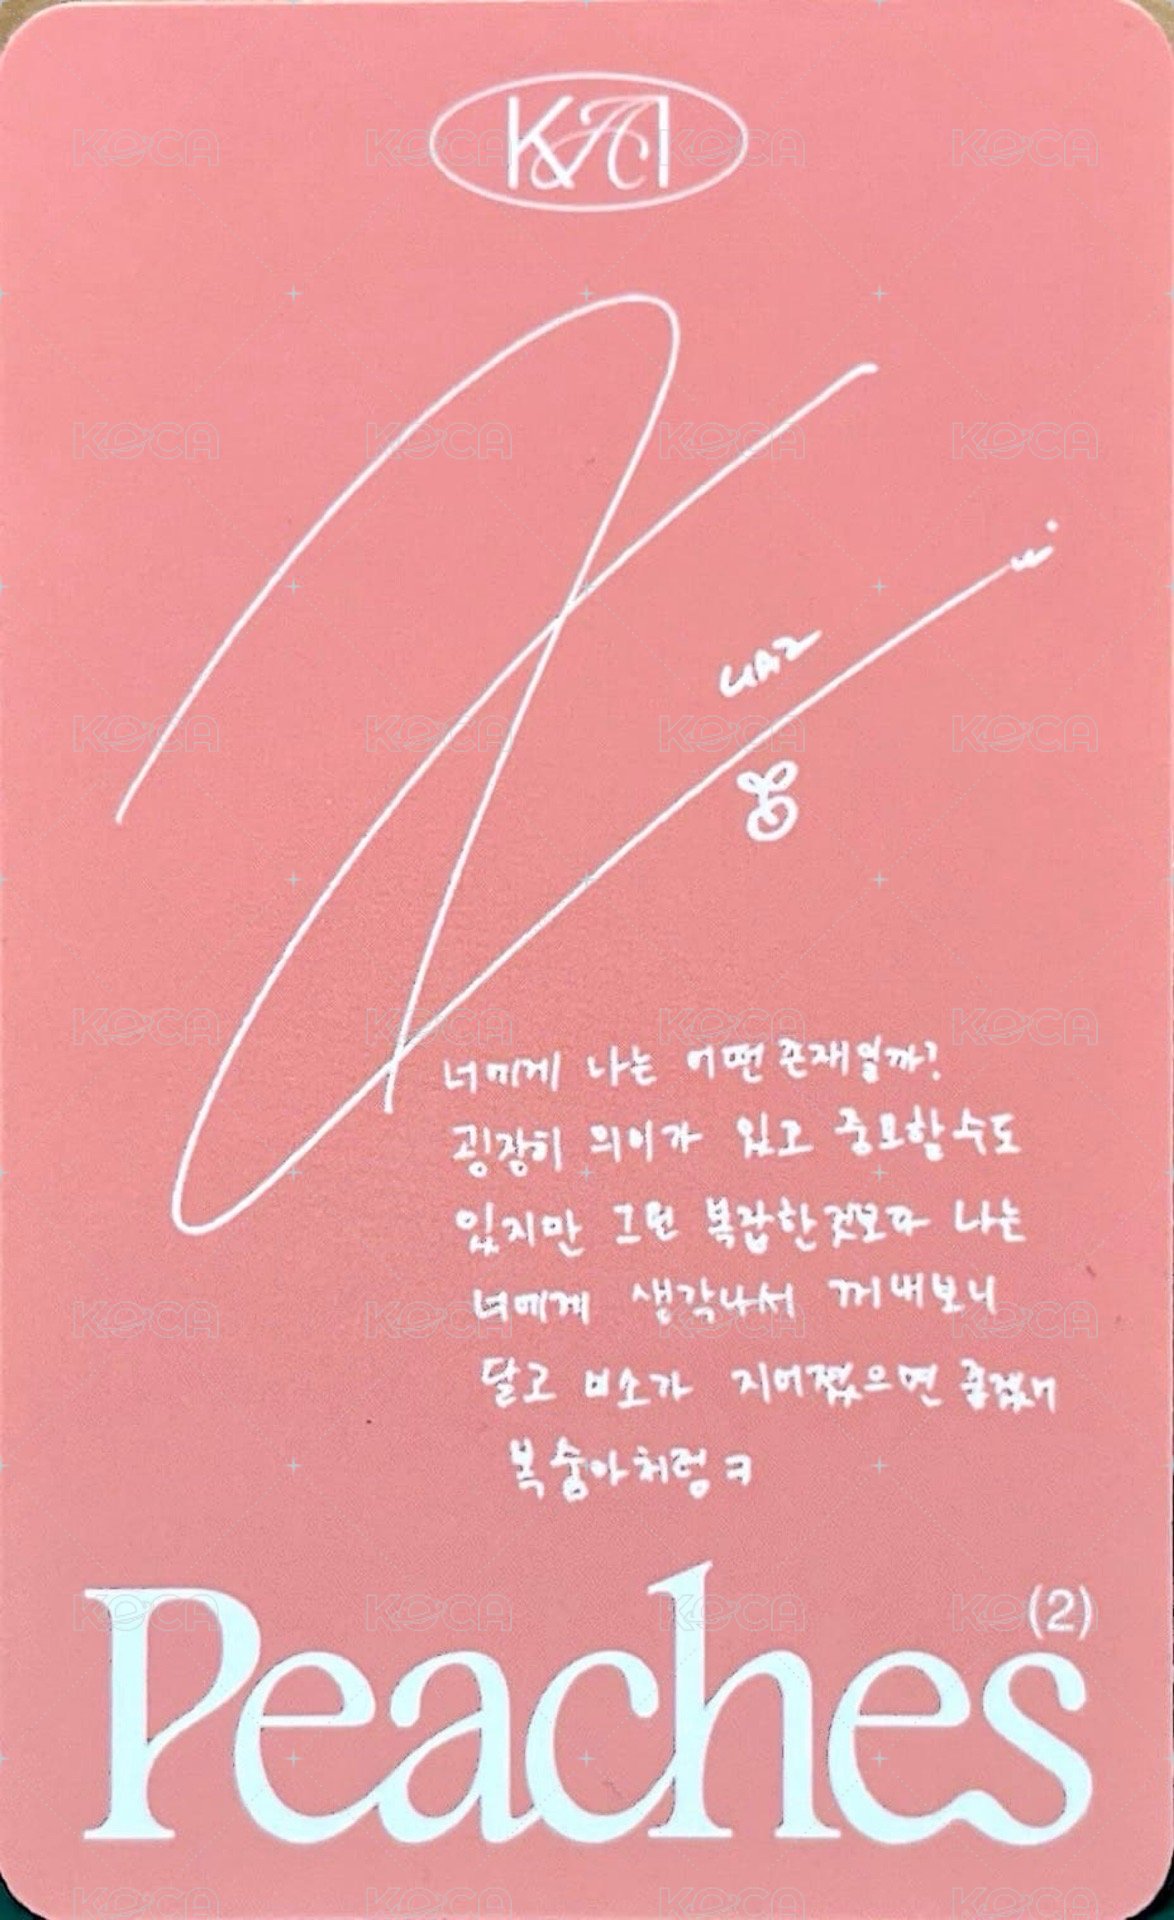 KAI
너에게 나는 어떤 존재일까?
굉장히 의미가 있고 중요할 수도
있지만 그런 복잡한 것보다 나는
너에게 생각나서 꺼내보니
달고 미소가 지어졌으면 좋겠어
복숭아처럼 ㅋ
Peaches (2)
KOCA